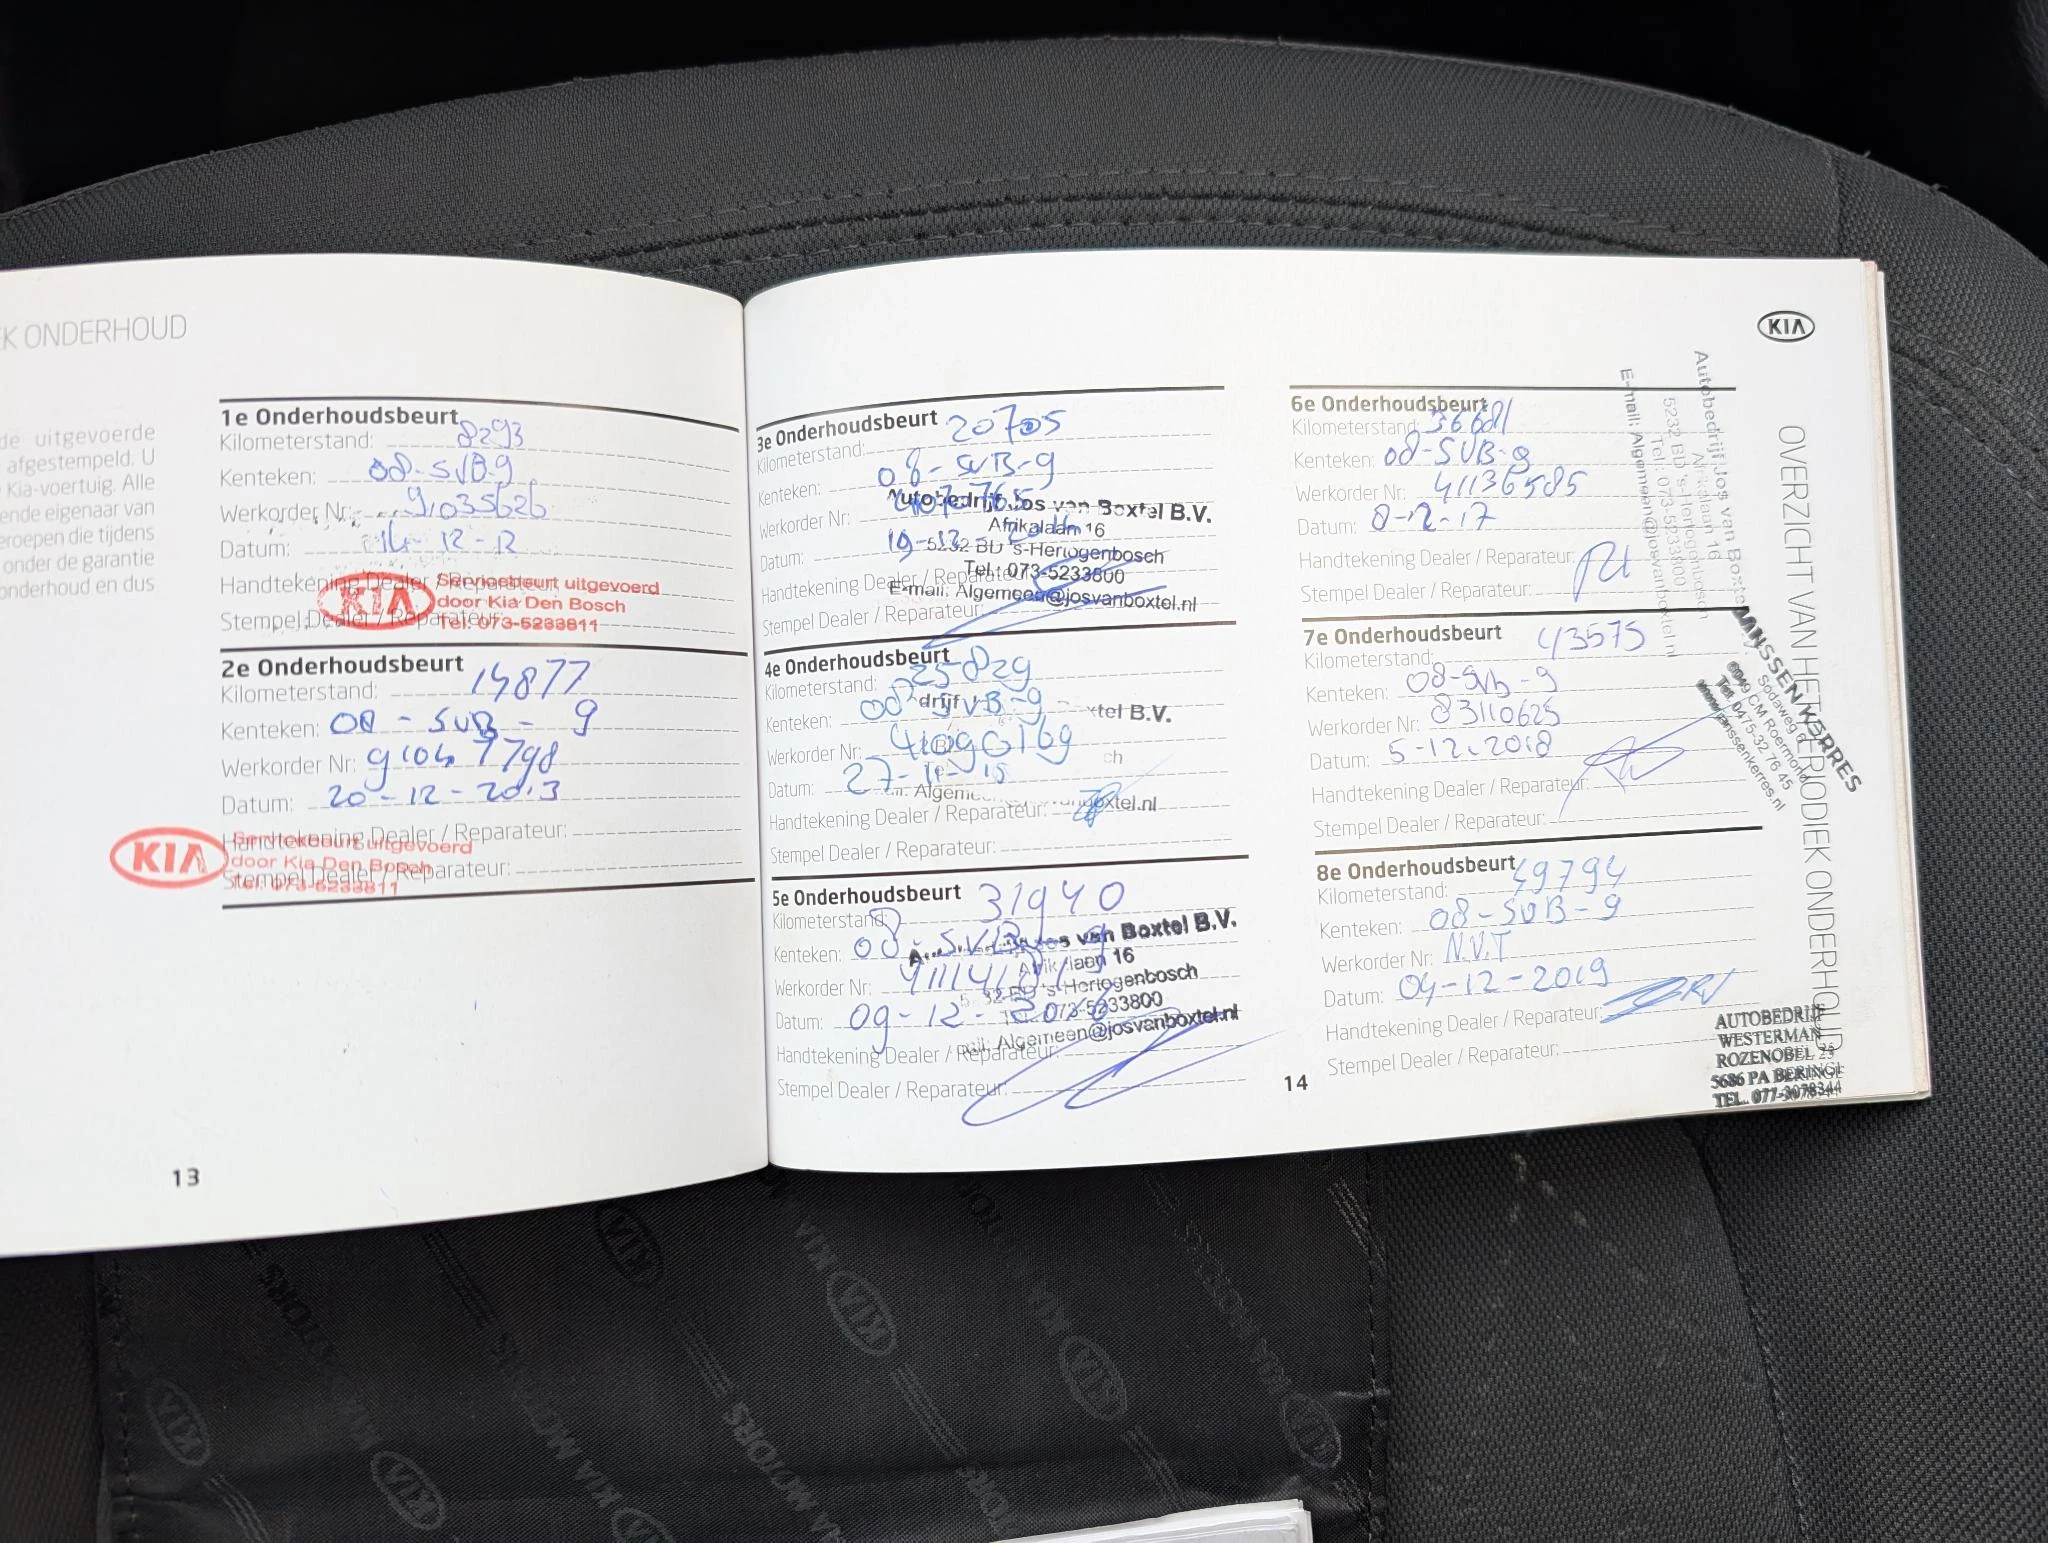 EK ONDERHOUD
de uitgevoerde
afgestempeld. U
Kia-voertuig. Alle
ende eigenaar van
eroepen die tijdens
onder de garantie
onderhoud en dus
1e Onderhoudsbeurt
Kilometerstand: 8293
Kenteken: 08-SVB9
Werkorder Nr: 91035626
Datum: 14-12-12
Handtekening Dealer / Reparateur:
Stempel Dealer / Reparateur:
KIA
Servicebeurt uitgevoerd
door Kia Den Bosch
Tel: 073-5233811
2e Onderhoudsbeurt
Kilometerstand: 14877
Kenteken: 08-SVB-9
Werkorder Nr: 91047798
Datum: 20-12-2013
Handtekening Dealer / Reparateur:
Stempel Dealer / Reparateur:
KIA
Servicebeurt uitgevoerd
door Kia Den Bosch
Tel: 073-5233811
13
3e Onderhoudsbeurt
Kilometerstand: 20705
Kenteken: 08-SVB-9
Werkorder Nr:
Datum:
Handtekening Dealer / Reparateur:
Stempel Dealer / Reparateur:
Autobedrijf Jos van Boxtel B.V.
Afrikalaan 16
5232 BD 's-Hertogenbosch
Tel.: 073-5233800
E-mail: Algemeen@josvanboxtel.nl
4e Onderhoudsbeurt
Kilometerstand: 25829
Kenteken: 08-SVB-9
Werkorder Nr:
Datum:
Handtekening Dealer / Reparateur:
Stempel Dealer / Reparateur:
drijf
xtel B.V.
ch
5e Onderhoudsbeurt
Kilometerstand: 31940
Kenteken: 08-SVB-9
Werkorder Nr:
Datum: 09-12-2016
Handtekening Dealer / Reparateur:
Stempel Dealer / Reparateur:
os van Boxtel B.V.
Afrikalaan 16
's-Hertogenbosch
073-5233800
Algemeen@josvanboxtel.nl
14
KIA
6e Onderhoudsbeurt
Kilometerstand: 36681
Kenteken: 08-SVB-9
Werkorder Nr: 41136585
Datum: 8-12-17
Handtekening Dealer / Reparateur:
Stempel Dealer / Reparateur:
Autobedrijf Jos van Boxtel
Afrikalaan 16
5232 BD 's-Hertogenbosch
Tel.: 073-5233800
E-mail: Algemeen@josvanboxtel.nl
7e Onderhoudsbeurt
Kilometerstand: 43575
Kenteken: 08-SVB-9
Werkorder Nr: 83110625
Datum: 5-12-2018
Handtekening Dealer / Reparateur:
Stempel Dealer / Reparateur:
JANSSEN KERRES
Sodaweg 6
6049 CM Roermond
Tel. 0475-32 76 45
www.janssenkerres.nl
8e Onderhoudsbeurt
Kilometerstand: 49794
Kenteken: 08-SVB-9
Werkorder Nr: N.V.T
Datum: 04-12-2019
Handtekening Dealer / Reparateur:
Stempel Dealer / Reparateur:
AUTOBEDRIJF
WESTERMAN
ROZENOBEL 25
5686 PA BERINGE
TEL. 077-3078344
OVERZICHT VAN HET PERIODIEK ONDERHOUD
KIA MOTORS